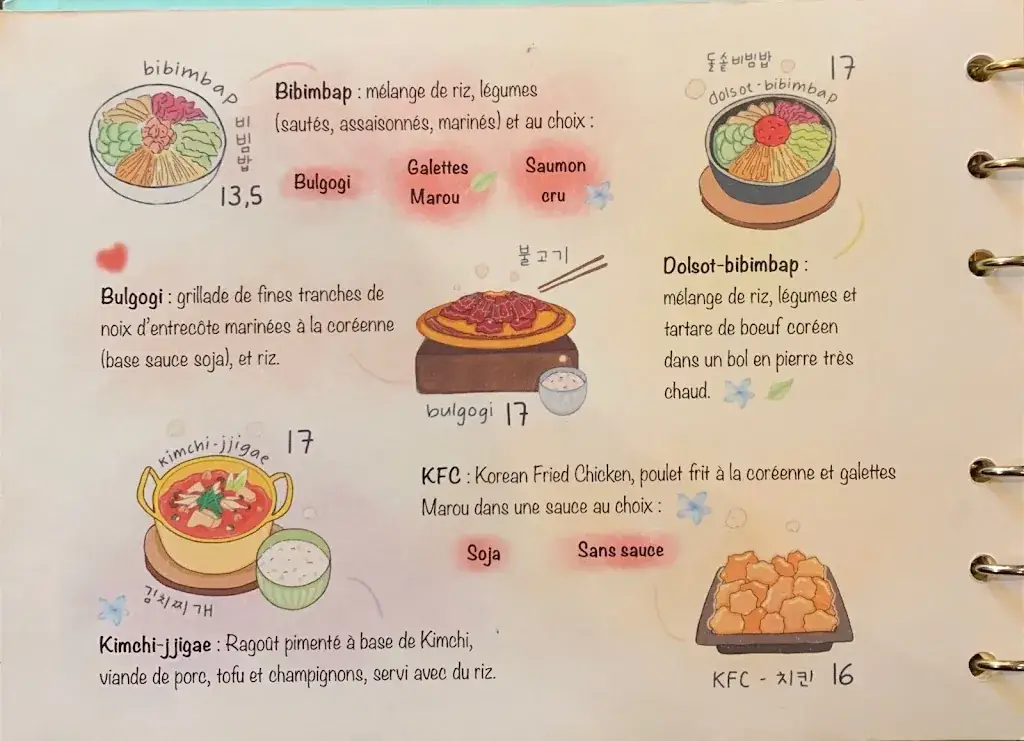 bibimbap
비빔밥
13,5
Bibimbap : mélange de riz, légumes
(sautés, assaisonnés, marinés) et au choix :
Bulgogi
Galettes
Marou
Saumon
cru
돌솥비빔밥
17
dolsot-bibimbap
Dolsot-bibimbap :
mélange de riz, légumes et
tartare de boeuf coréen
dans un bol en pierre très
chaud.
Bulgogi : grillade de fines tranches de
noix d'entrecôte marinées à la coréenne
(base sauce soja), et riz.
불고기
bulgogi 17
kimchi-jjigae
17
김치찌개
Kimchi-jjigae : Ragoût pimenté à base de Kimchi,
viande de porc, tofu et champignons, servi avec du riz.
KFC : Korean Fried Chicken, poulet frit à la coréenne et galettes
Marou dans une sauce au choix :
Soja
Sans sauce
KFC - 치킨 16